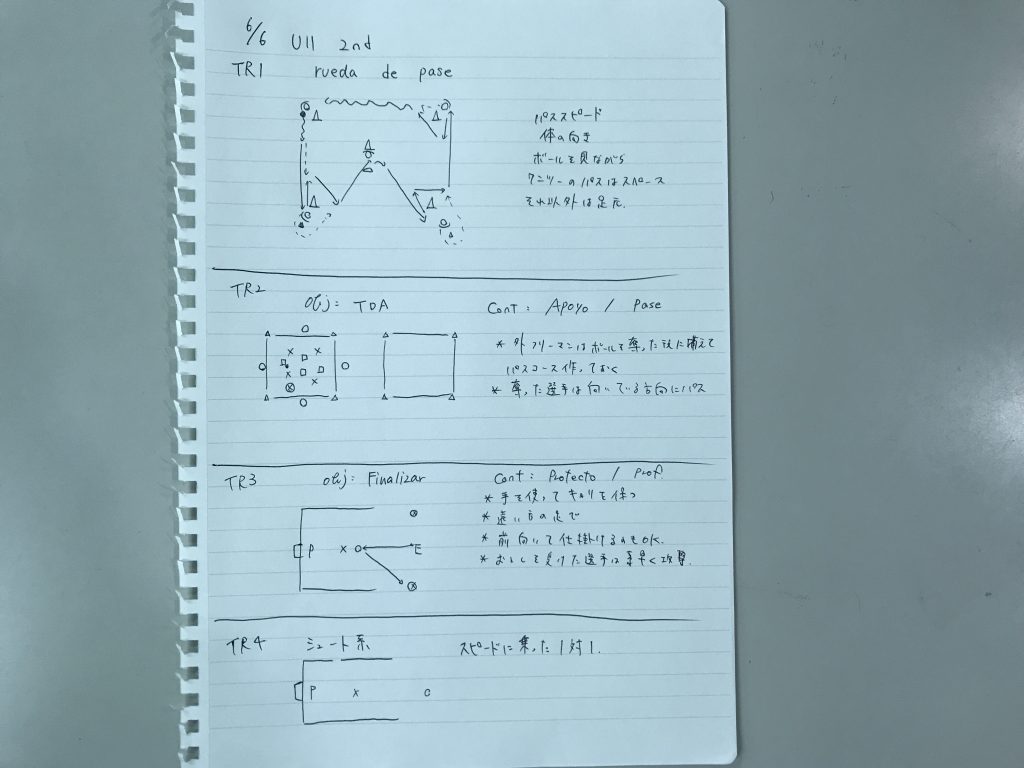 6/6 U11 2nd
TR1 rueda de pase
パススピード
体の向き
ボールを見ながら
ワンツーのパスはスペース
それ以外は足元.
TR2
obj: TDA
Cont: Apoyo / pase
* 外フリーマンはボールを奪った秋に備えて
パスコース作っておく
* 奪った選手は向いている方向にパス
TR3
obj: Finalizar
Cont: Protecto / prof.
* 手を使ってキョリを保つ
* 遠い方の足で
P X O E
* 前向いて仕掛けるのもOK.
* おとして受けた選手は素早く攻撃.
TR4 シュート系
スピードに乗った1対1.
P X O